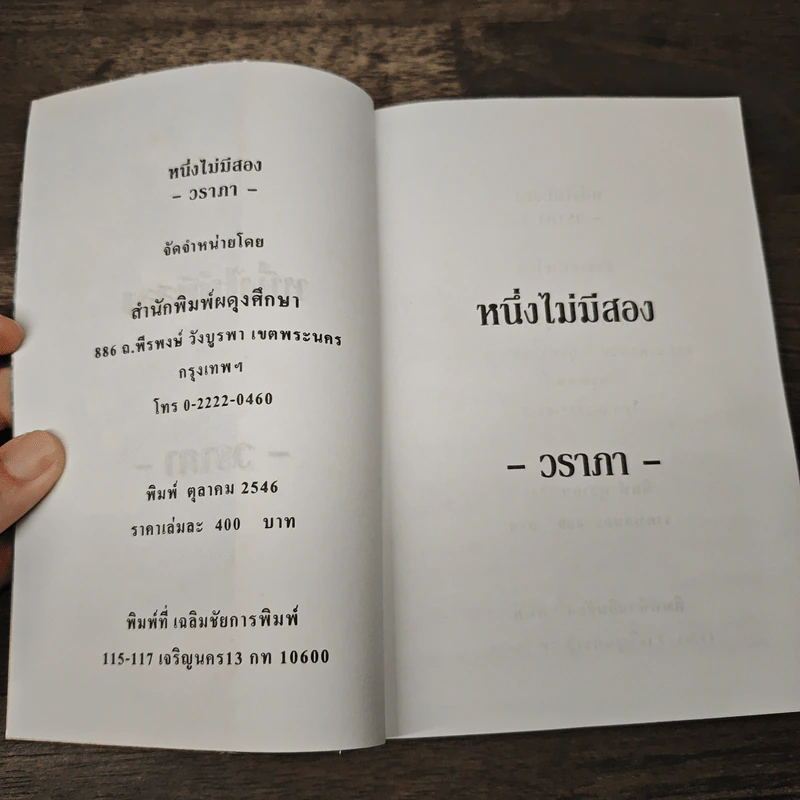 หนึ่งไม่มีสอง
– วราภา –
จัดจำหน่ายโดย
สำนักพิมพ์ผดุงศึกษา
886 ถ.พีรพงษ์ วังบูรพา เขตพระนคร
กรุงเทพฯ
โทร 0-2222-0460
พิมพ์ ตุลาคม 2546
ราคาเล่มละ 400 บาท
พิมพ์ที่ เฉลิมชัยการพิมพ์
115-117 เจริญนคร13 กท 10600
หนึ่งไม่มีสอง
– วราภา –